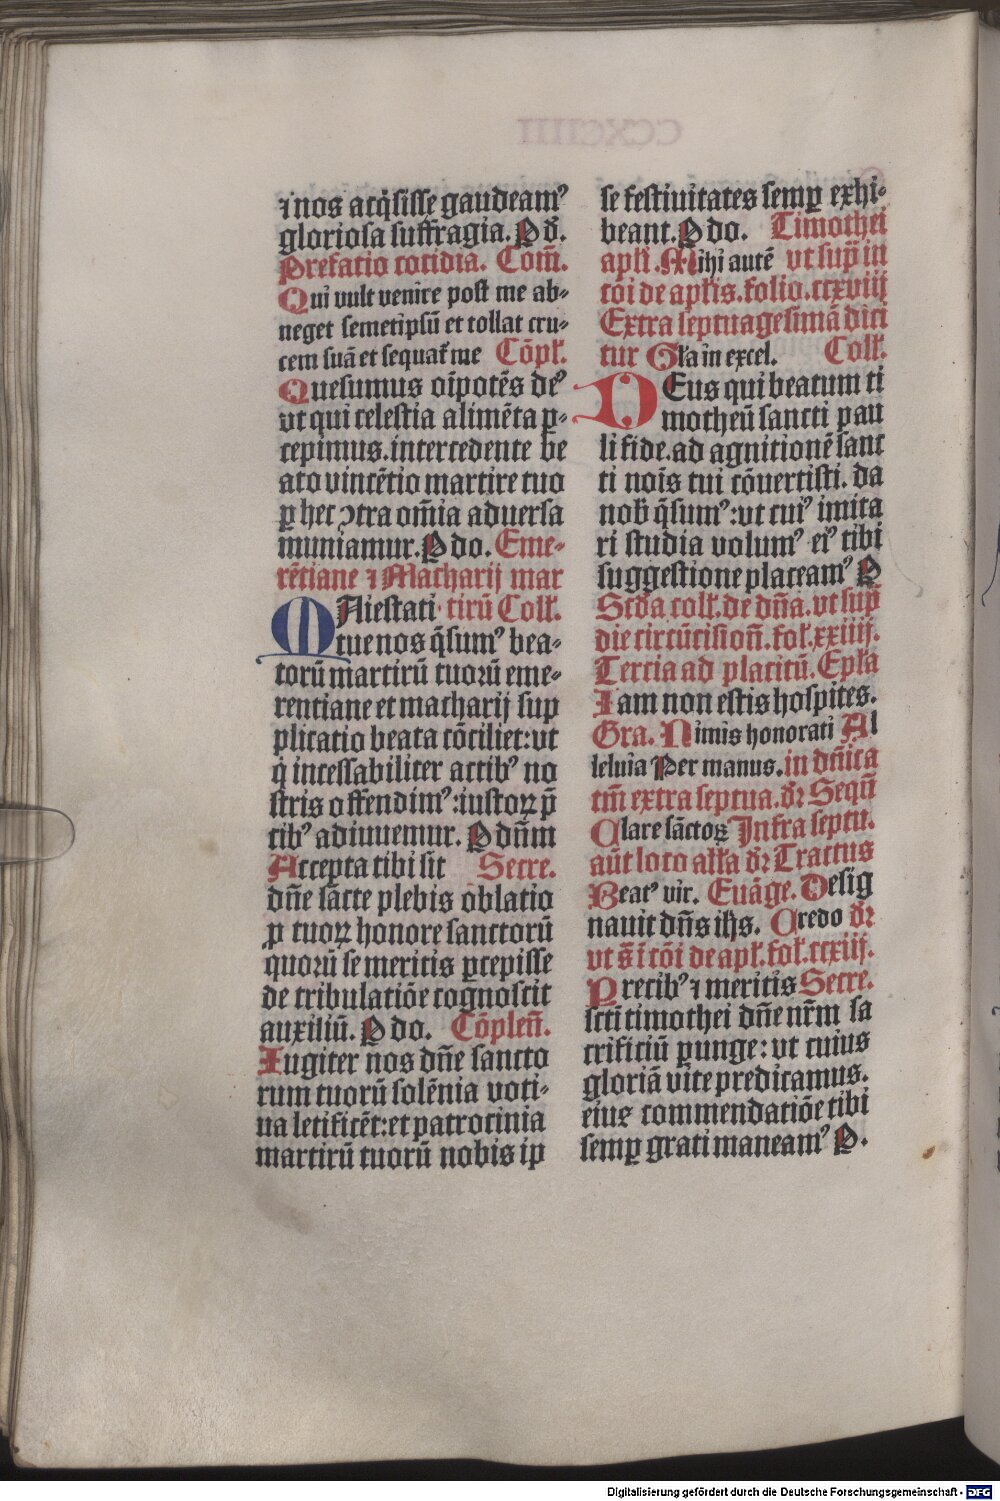 ⁊ nos atq̇sisse gaudeamꝰ
gloriosa suffragia. P d̄.
Prefatio cotidia. Com̄.
Qui vult venire post me ab-
neget semetipsū et tollat cru-
cem suā et sequat᷑ me Cōpl̄.
Quesumus oīpotēs deꝰ
vt qui celestia alimēta ꝑ-
cepimus. intercedente be
ato vincētio martire tuo
ꝑ hec ꝯtra om̄ia aduersa
muniamur. P do. Eme-
rētiane ⁊ Macharij mar
MAiestati tirū Coll̄.
tue nos q̄sumꝰ bea-
torū martirū tuorū eme-
rentiane et macharij sup
plicatio beata cōciliet: vt
q̇ incessabiliter actibꝰ no
stris offendimꝰ: iustoꝝ p̄
cibꝰ adiuuemur. P dn̄m
Accepta tibi sit Secre.
dn̄e sācte plebis oblatio
ꝓ tuoꝝ honore sanctorū
quorū se meritis ꝑcepisse
de tribulatiōe cognoscit
auxiliū. P do. Cōplen̄.
Iugiter nos dn̄e sancto
rum tuorū solēnia voti-
ua letificēt: et patrocinia
martirū tuorū nobis ip
se festiuitates semꝑ exhi-
beant. P do. Timothei
apl̄i. Mihi autē vt sup̄ in
cōi de apl̄is. folio. ccxviij
Extra septuagesimā dici
tur Gl̄a in excel. Coll̄.
DEus qui beatum ti
motheū sancti pau
li fide. ad agnitionē sanc
ti noīs tui cōuertisti. da
nob̄ q̄sumꝰ: vt cuiꝰ imita
ri studia volumꝰ eiꝰ tibi
suggestione placeamꝰ P
Scd̄a coll̄. de dn̄a. vt sup̄
die circūcision̄. fol̄. xxiiij.
Tercia ad placitū. Epl̄a
Iam non estis hospites.
Gra. Nimis honorati Al
leluia Per manus. in dn̄ica
tm̄ extra septua. dr̄ Seqū
Clare sāctoꝝ Infra septu.
aūt loco all̄a dr̄ Tractus
Beatꝰ vir. Euāge. Desig
nauit dn̄s ihs. Credo dr̄
vt s̄ ī cōi de apl̄. fol̄. ccxiij.
Precibꝰ ⁊ meritis Secre.
scti timothei dn̄e nr̄m sa
crificiū ꝑunge: vt cuius
gloriā vite predicamus.
eius commendatiōe tibi
semꝑ grati maneamꝰ P.
Digitalisierung gefördert durch die Deutsche Forschungsgemeinschaft - DFG